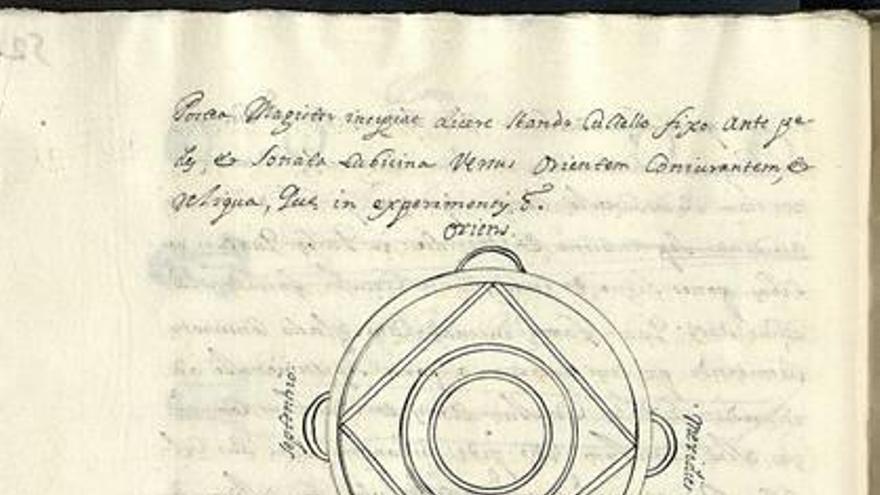 Postea Magister incipiat dicere stando Cultello fixo Ante pe-
des, & Sonata Bubicina Versus Orientem Coniurantem, &
reliqua, Que in experimentis &.
Oriens.
septentrio
Meridies